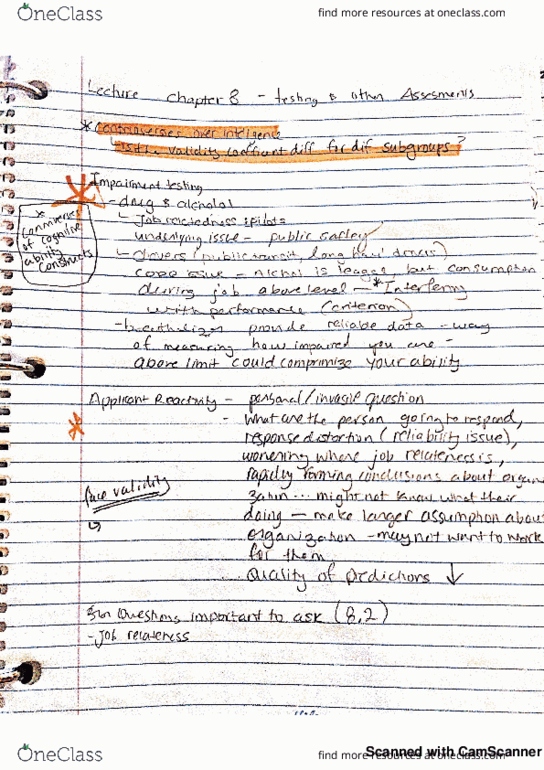 OneClass
find more resources at oneclass.com
Lecture chapter 8 - testing & other Assesments
* Controverses over inteligence
is the validity coefficient diff for dif. subgroups?
Impairment testing
- drug & alcohol
Job relatedness pilots
underlying issue - public safley
drivers (public transit, long haul drivers)
core issue - alchol is leagle, but consumption
during job above level - * Interfering
with performance (criterion)
- breathalizer provide reliable data - way
of measuring how impaired you are -
above limit could comprimize your ability
*
Controverses
of cognitive
ability
constructs
Applicant Reactivity - personal/invasive question
- what are the person going to respond,
response distortion (reliability issue),
wonering where job relateness is,
rapidly forming conclusions about organ
zation ... might not know what their
doing - make larger assumption about
organization - may not want to work
for them
Quality of predictors ↓
face validity
Questions important to ask (8.2)
- Job relateness
OneClass
find more resources at oneclass.com
Scanned with CamScanner